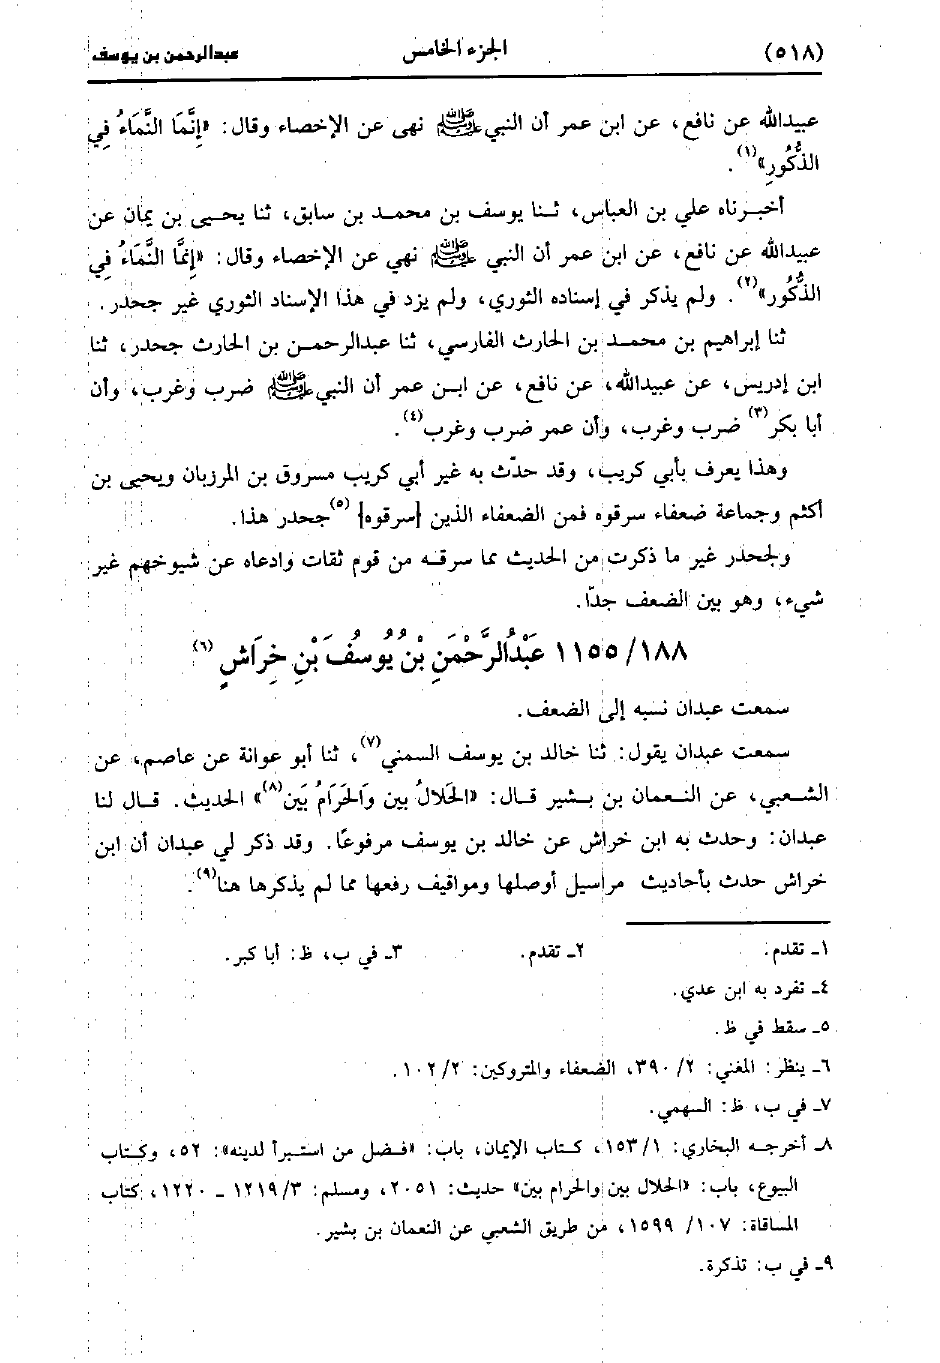 (٥١٨) الجزء الخامس عبدالرحمن بن يوسف
عبيدالله عن نافع، عن ابن عمر أن النبي ﷺ نهى عن الإخصاء وقال: «إِنَّمَا النَّمَاءُ فِي
الذُّكُورِ»(١).
أخبرناه علي بن العباس، ثنا يوسف بن محمد بن سابق، ثنا يحيى بن يمان عن
عبيدالله عن نافع، عن ابن عمر أن النبي ﷺ نهي عن الإخصاء وقال: «إِنَّمَا النَّمَاءُ فِي
الذُّكُور»(٢). ولم يذكر في إسناده الثوري، ولم يزد في هذا الإسناد الثوري غير جحدر.
ثنا إبراهيم بن محمد بن الحارث الفارسي، ثنا عبدالرحمن بن الحارث جحدر، ثنا
ابن إدريس، عن عبيدالله، عن نافع، عن ابن عمر أن النبي ﷺ ضرب وغرب، وأن
أبا بكر(٣) ضرب وغرب، وأن عمر ضرب وغرب(٤).
وهذا يعرف بأبي كريب، وقد حدّث به غير أبي كريب مسروق بن المرزبان ويحيى بن
أكثم وجماعة ضعفاء سرقوه فمن الضعفاء الذين [سرقوه] (٥)جحدر هذا.
ولجحدر غير ما ذكرت من الحديث مما سرقه من قوم ثقات وادعاه عن شيوخهم غير
شيء، وهو بين الضعف جدّا.
١١٥٥/١٨٨ عَبْدُالرَّحْمَنِ بْنُ يُوسُفَ بْنِ خِرَاشٍ (٦)
سمعت عبدان نسبه إلى الضعف.
سمعت عبدان يقول: ثنا خالد بن يوسف السمني(٧)، ثنا أبو عوانة عن عاصم، عن
الشعبي، عن النعمان بن بشير قال: «الحَلالُ بين وَالحَرَامُ بَين(٨)» الحديث. قال لنا
عبدان: وحدث به ابن خراش عن خالد بن يوسف مرفوعًا. وقد ذكر لي عبدان أن ابن
خراش حدث بأحاديث مراسيل أوصلها ومواقيف رفعها مما لم يذكرها هنا(٩).
١ـ تقدم. ٢ـ تقدم. ٣ـ في ب، ظ: أبا كبر.
٤ـ تفرد به ابن عدي.
٥ـ سقط في ظ.
٦ـ ينظر: المغني: ٣٩٠/٢، الضعفاء والمتروكين: ١٠٢/٢.
٧ـ في ب، ظ: السهمي.
٨ـ أخرجه البخاري: ١٥٣/١، كتاب الإيمان، باب: «فضل من استبرأ لدينه»: ٥٢، وكتاب
البيوع، باب: «الحلال بين والحرام بين» حديث: ٢٠٥١، ومسلم: ١٢١٩/٣ ـ ١٢٢٠، كتاب
المساقاة: ١٠٧/ ١٥٩٩، من طريق الشعبي عن النعمان بن بشير.
٩ـ في ب: تذكرة.